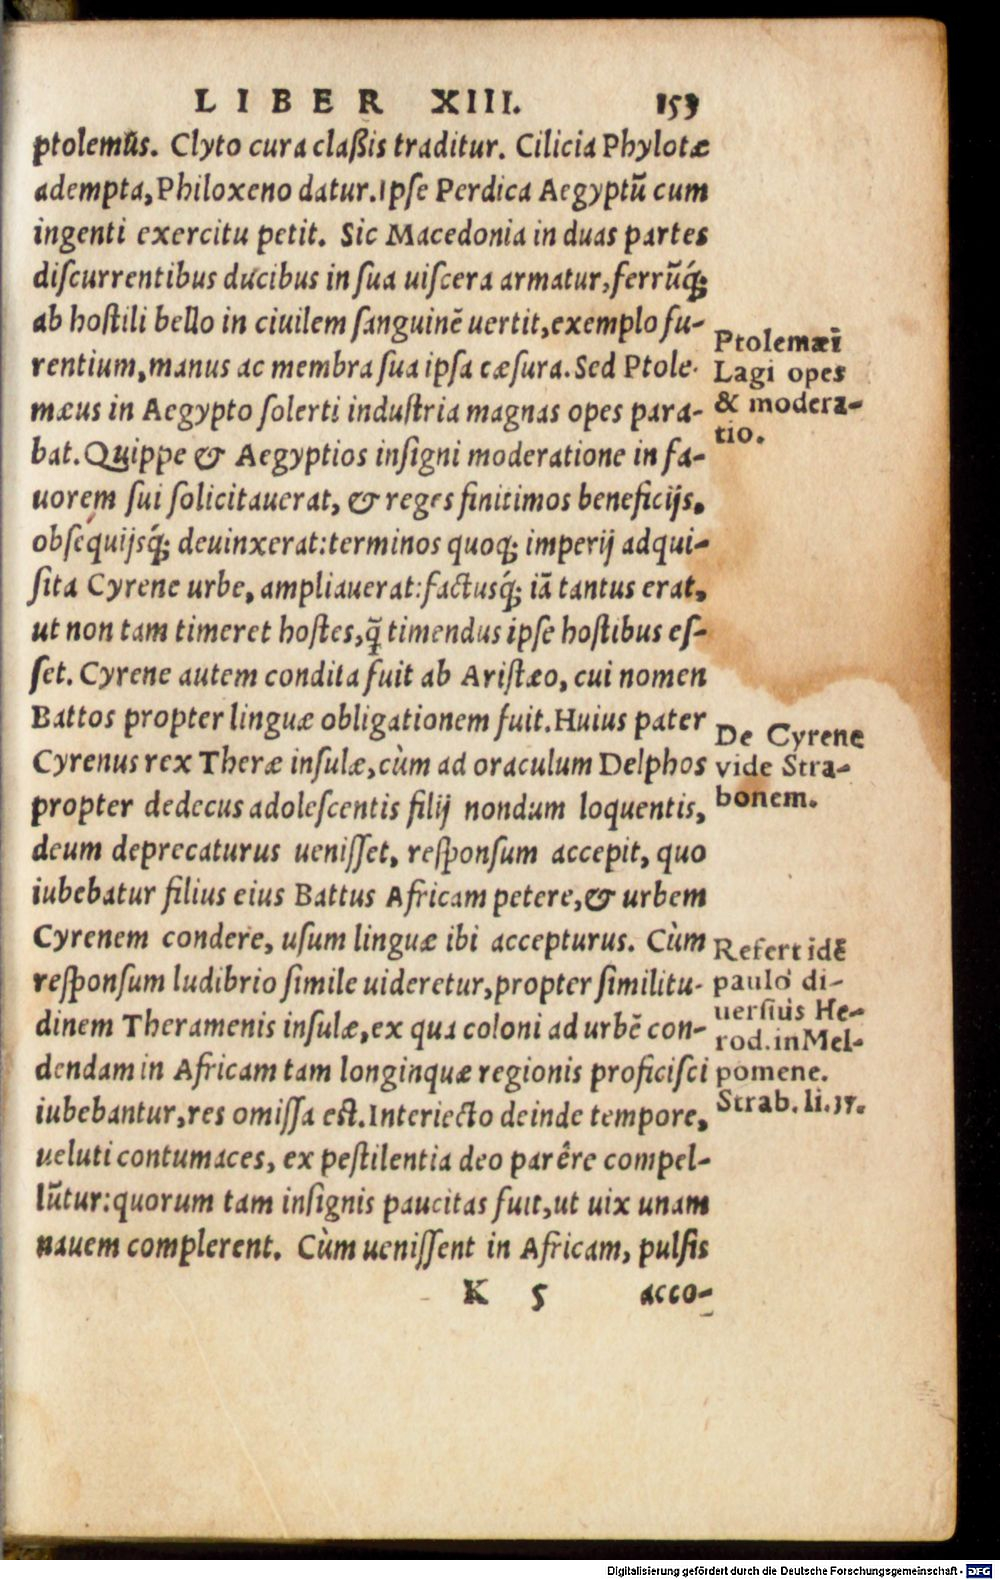 LIBER XIII. 153
ptolemũs. Clyto cura claßis traditur. Cilicia Phylotæ
adempta, Philoxeno datur. Ipſe Perdica Aegyptũ cum
ingenti exercitu petit. Sic Macedonia in duas partes
diſcurrentibus ducibus in ſua uiſcera armatur, ferrũq́;
ab hoſtili bello in ciuilem ſanguinẽ uertit, exemplo fu-
rentium, manus ac membra ſua ipſa cæſura. Sed Ptole-
mæus in Aegypto ſolerti induſtria magnas opes para-
bat. Quippe & Aegyptios inſigni moderatione in fa-
uorem ſui ſolicitauerat, & reges finitimos beneficijs,
obſequijsq́; deuinxerat: terminos quoq; imperij adqui-
ſita Cyrene urbe, ampliauerat: factusq́; iã tantus erat,
ut non tam timeret hoſtes, q̃ timendus ipſe hoſtibus eſ-
ſet. Cyrene autem condita fuit ab Ariſtæo, cui nomen
Battos propter linguæ obligationem fuit. Huius pater
Cyrenus rex Theræ inſulæ, cùm ad oraculum Delphos
propter dedecus adoleſcentis filij nondum loquentis,
deum deprecaturus ueniſſet, reſponſum accepit, quo
iubebatur filius eius Battus Africam petere, & urbem
Cyrenem condere, uſum linguæ ibi accepturus. Cùm
reſponſum ludibrio ſimile uideretur, propter ſimilitu-
dinem Theramenis inſulæ, ex qua coloni ad urbẽ con-
dendam in Africam tam longinquæ regionis proficiſci
iubebantur, res omiſſa eſt. Interiecto deinde tempore,
ueluti contumaces, ex peſtilentia deo parêre compel-
lũtur: quorum tam inſignis paucitas fuit, ut uix unam
nauem complerent. Cùm ueniſſent in Africam, pulſis
K 5 acco-
Ptolemæi
Lagi opes
& modera-
tio.
De Cyrene
vide Stra-
bonem.
Refert idẽ
paulò di-
uerſius He-
rod. in Mel-
pomene.
Strab. li. 17.
Digitalisierung gefördert durch die Deutsche Forschungsgemeinschaft - DFG